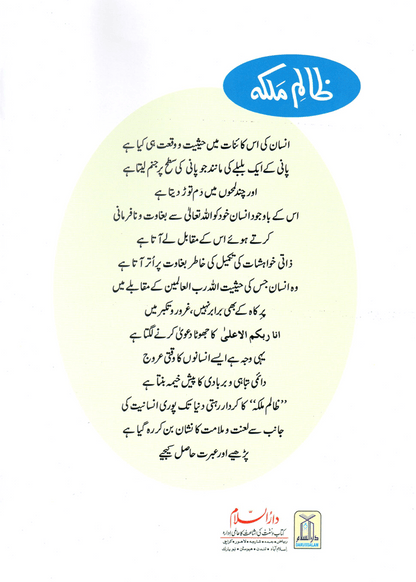 ظالم ملکہ
انسان کی اس کائنات میں حیثیت و وقعت ہی کیا ہے
پانی کے ایک بلبلے کی مانند جو پانی کی سطح پر جنم لیتا ہے
اور چند لمحوں میں دم توڑ دیتا ہے
اس کے باوجود انسان خود کو اللہ تعالیٰ سے بغاوت و نافرمانی
کرتے ہوئے اس کے مقابل لے آتا ہے
ذاتی خواہشات کی تکمیل کی خاطر بغاوت پر اُتر آتا ہے
وہ انسان جس کی حیثیت اللہ رب العالمین کے مقابلے میں
پرکاہ کے بھی برابر نہیں، غرور و تکبر میں
انا ربکم الاعلیٰ کا جھوٹا دعویٰ کرنے لگتا ہے
یہی وجہ ہے ایسے انسانوں کا وقتی عروج
دائمی تباہی و بربادی کا پیش خیمہ بنتا ہے
”ظالم ملکہ“ کا کردار رہتی دنیا تک پوری انسانیت کی
جانب سے لعنت و ملامت کا نشان بن کر رہ گیا ہے
پڑھیے اور عبرت حاصل کیجیے
دارالسلام
کتاب و سنت کی اشاعت کا عالمی ادارہ
ریاض • جدہ • شارجہ • لاہور • کراچی
اسلام آباد • لندن • ہیوسٹن • نیو یارک
دارالسلام
DARUSSALAM